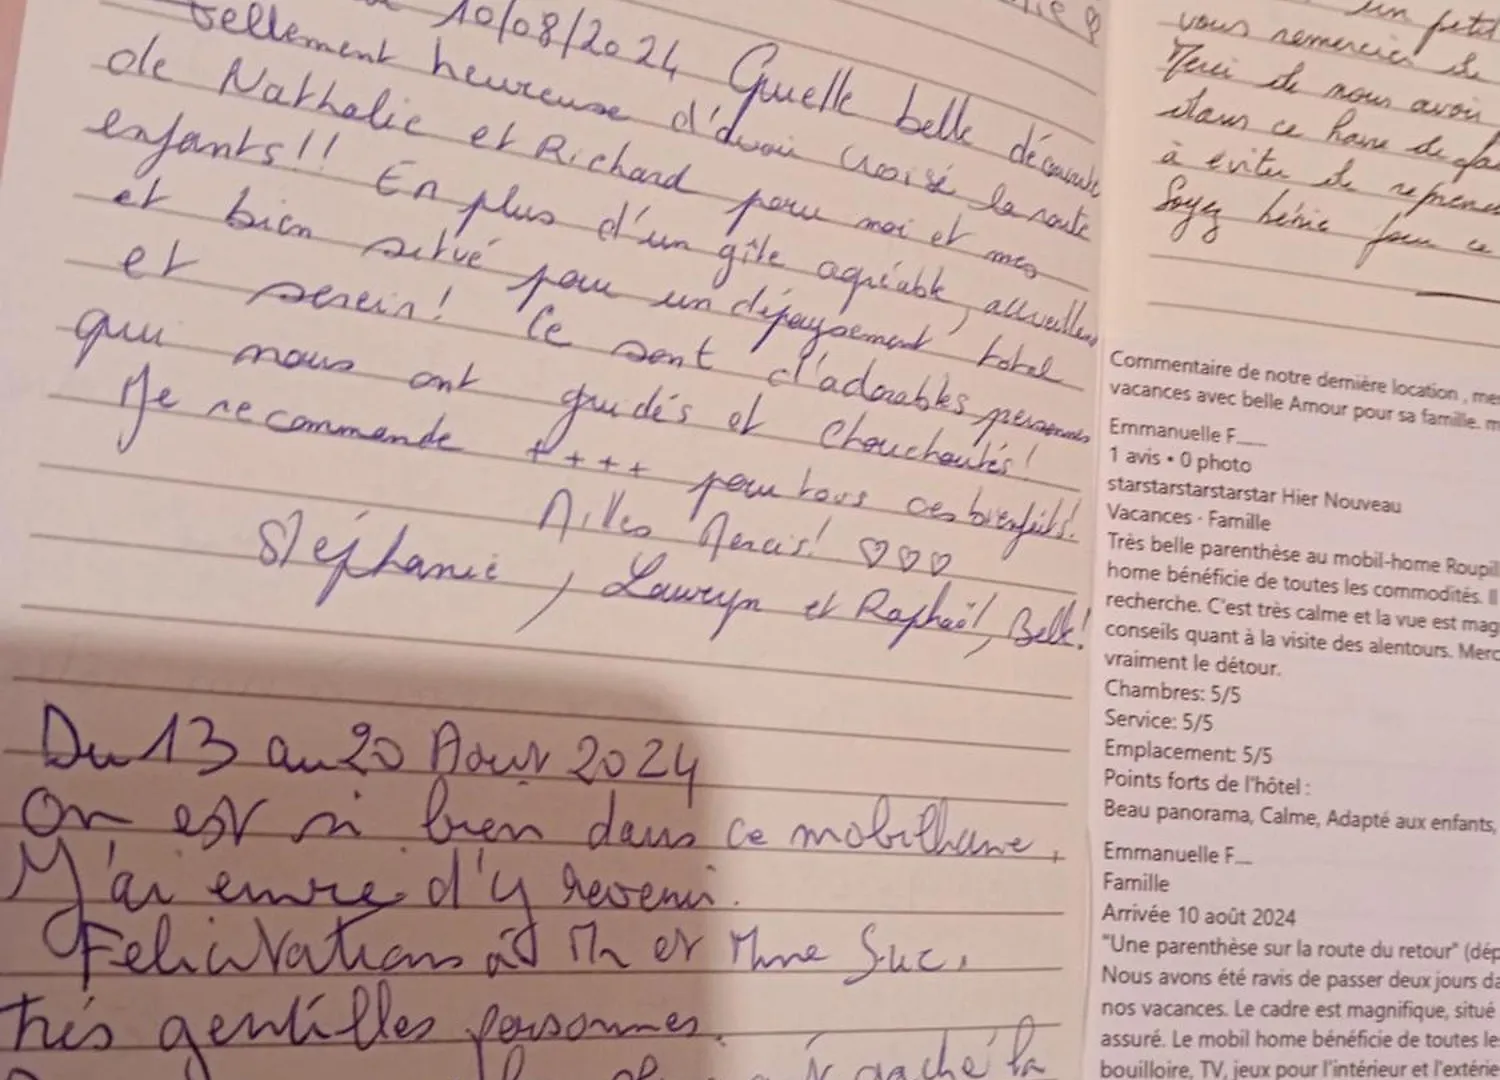 10/08/2024 Quelle belle découverte
tellement heureuse d'avoir croisé la route
de Nathalie et Richard pour moi et mes
enfants!! En plus d'un gîte agréable, accueillant
et bien situé pour un dépaysement total
et serein! Ce sont d'adorables personnes
qui nous ont guidés et chouchoutés!
Je recommande ++++ pour tous ces bienfaits!
Milles Mercis! ♡♡♡
Stéphanie, Lauryn et Raphaël, Belk!
Du 13 au 20 Aout 2024
On est si bien dans ce mobilhome,
M'ai envie d'y revenir.
Felicitations à Mr et Mme Suc.
très gentilles personnes.
gaché la
un petit
vous remercier de
Merci de nous avoir
dans ce havre de
à éviter de
Soyez bénie pour ce
Commentaire de notre dernière location, mes
vacances avec belle Amour pour sa famille. m
Emmanuelle F.__
1 avis • 0 photo
starstarstarstarstar Hier Nouveau
Vacances - Famille
Très belle parenthèse au mobil-home Roupil
home bénéficie de toutes les commodités. Il
recherche. C'est très calme et la vue est mag
conseils quant à la visite des alentours. Merc
vraiment le détour.
Chambres: 5/5
Service: 5/5
Emplacement: 5/5
Points forts de l'hôtel :
Beau panorama, Calme, Adapté aux enfants,
Emmanuelle F.__
Famille
Arrivée 10 août 2024
"Une parenthèse sur la route du retour" (dép
Nous avons été ravis de passer deux jours da
nos vacances. Le cadre est magnifique, situé
assuré. Le mobil home bénéficie de toutes le
bouilloire, TV, jeux pour l'intérieur et l'extérie